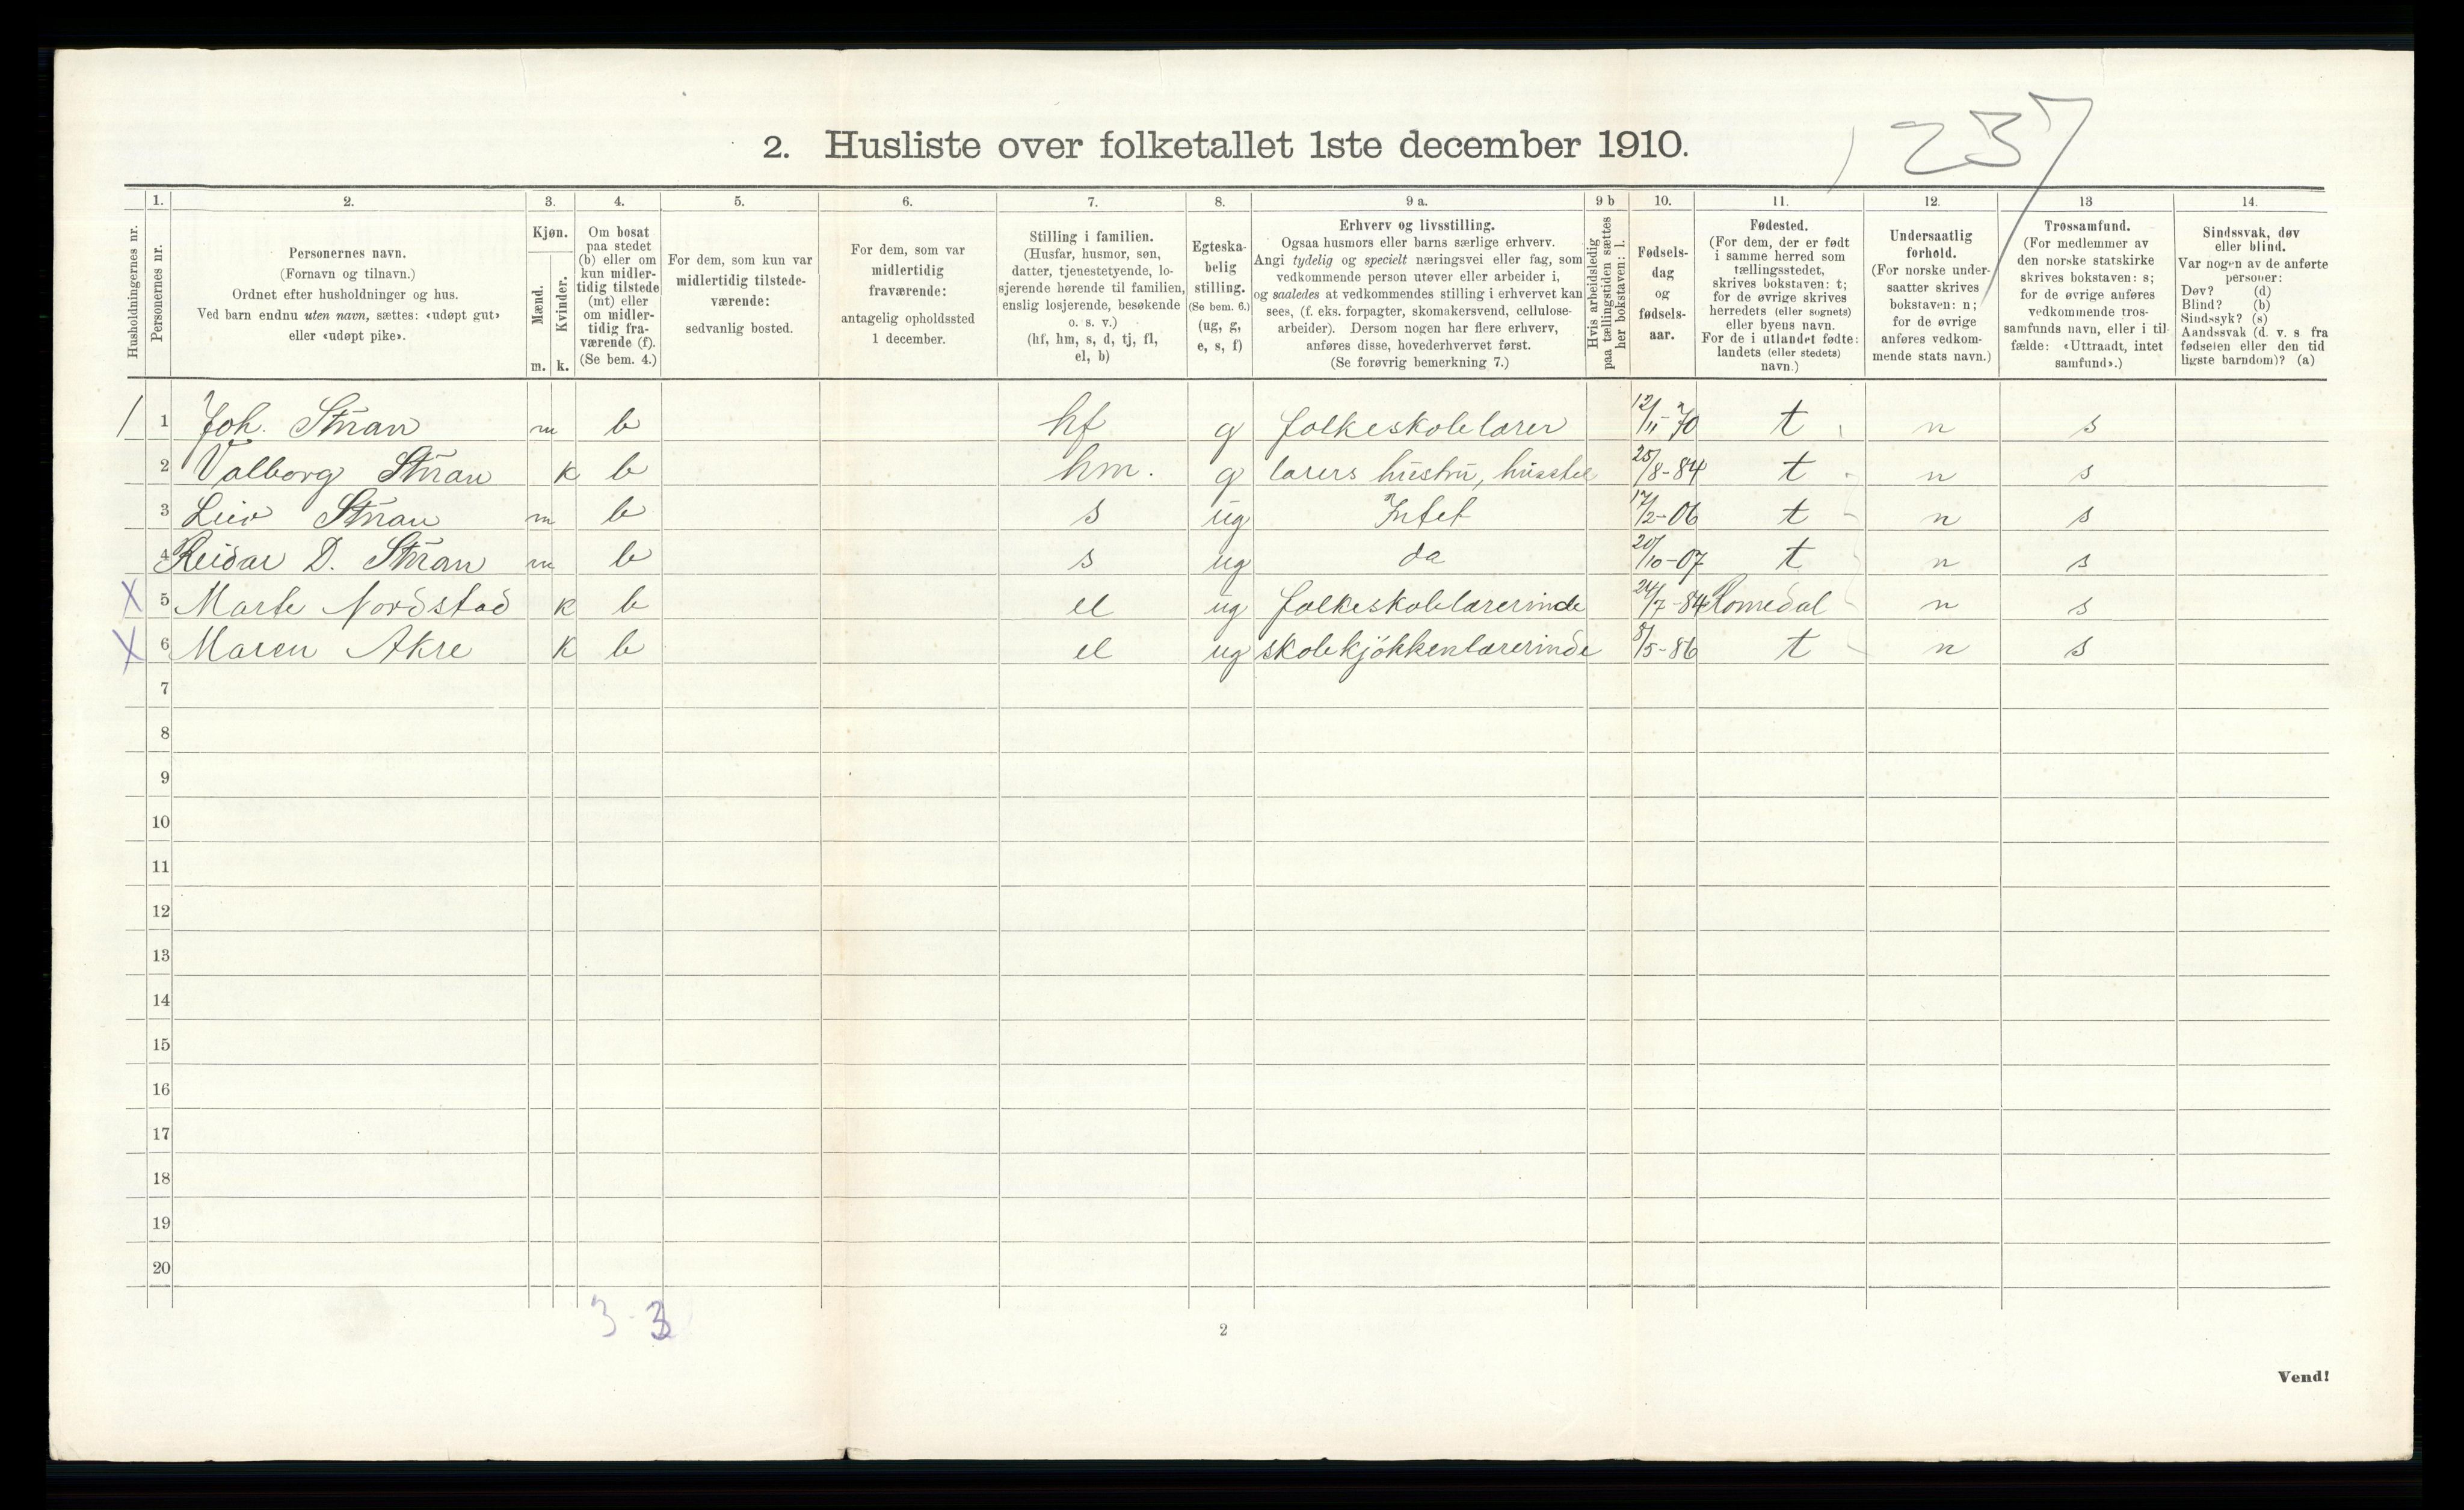 1237
2. Husliste over folketallet 1ste december 1910.
1. 2. 3. 4. 5. 6. 7. 8. 9 a. 9 b 10. 11. 12. 13 14.
Husholdningernes nr.
Personernes nr.
Personernes navn.
(Fornavn og tilnavn.)
Ordnet efter husholdninger og hus.
Ved barn endnu uten navn, sættes: «udøpt gut»
eller «udøpt pike».
Kjøn.
Mænd.
Kvinder.
m. k.
Om bosat
paa stedet
(b) eller om
kun midler-
tidig tilstede
(mt) eller
om midler-
tidig fra-
værende (f).
(Se bem. 4.)
For dem, som kun var
midlertidig tilstede-
værende:
sedvanlig bosted.
For dem, som var
midlertidig
fraværende:
antagelig opholdssted
1 december.
Stilling i familien.
(Husfar, husmor, søn,
datter, tjenestetyende, lo-
sjerende hørende til familien,
enslig losjerende, besøkende
o. s. v.)
(hf, hm, s, d, tj, fl,
el, b)
Egteska-
belig
stilling.
(Se bem. 6.)
(ug, g,
e, s, f)
Erhverv og livsstilling.
Ogsaa husmors eller barns særlige erhverv.
Angi tydelig og specielt næringsvei eller fag, som
vedkommende person utøver eller arbeider i,
og saaledes at vedkommendes stilling i erhvervet kan
sees, (f. eks. forpagter, skomakersvend, cellulose-
arbeider). Dersom nogen har flere erhverv,
anføres disse, hovederhvervet først.
(Se forøvrig bemerkning 7.)
Hvis arbeidsledig
paa tællingstiden sættes
her bokstaven: l.
Fødsels-
dag
og
fødsels-
aar.
Fødested.
(For dem, der er født
i samme herred som
tællingsstedet,
skrives bokstaven: t;
for de øvrige skrives
herredets (eller sognets)
eller byens navn.
For de i utlandet fødte:
landets (eller stedets)
navn.)
Undersaatlig
forhold.
(For norske under-
saatter skrives
bokstaven: n;
for de øvrige
anføres vedkom-
mende stats navn.)
Trossamfund.
(For medlemmer av
den norske statskirke
skrives bokstaven: s;
for de øvrige anføres
vedkommende tros-
samfunds navn, eller i til-
fælde: «Uttraadt, intet
samfund».)
Sindssvak, døv
eller blind.
Var nogen av de anførte
personer:
Døv? (d)
Blind? (b)
Sindssyk? (s)
Aandssvak (d. v. s. fra
fødselen eller den tid
ligste barndom)? (a)
1 1 Joh. Stuan m b hf g folkeskolelærer 12/11-70 t n s
2 Valborg Stuan k b hm. g lærers hustru, husstel 25/8-84 t n s
3 Stuan m b s ug Intet 17/2-06 t n s
4 Reidar D. Stuan m b s ug da 20/10-07 t n s
X 5 Marte Nordstad k b el ug folkeskolelærerinde 24/7-84 Romedal n s
X 6 Maren Akre k b el ug skolekjøkkenlærerinde 8/5-86 t n s
7
8
9
10
11
12
13
14
15
16
17
18
19
20
3-3
2
Vend!